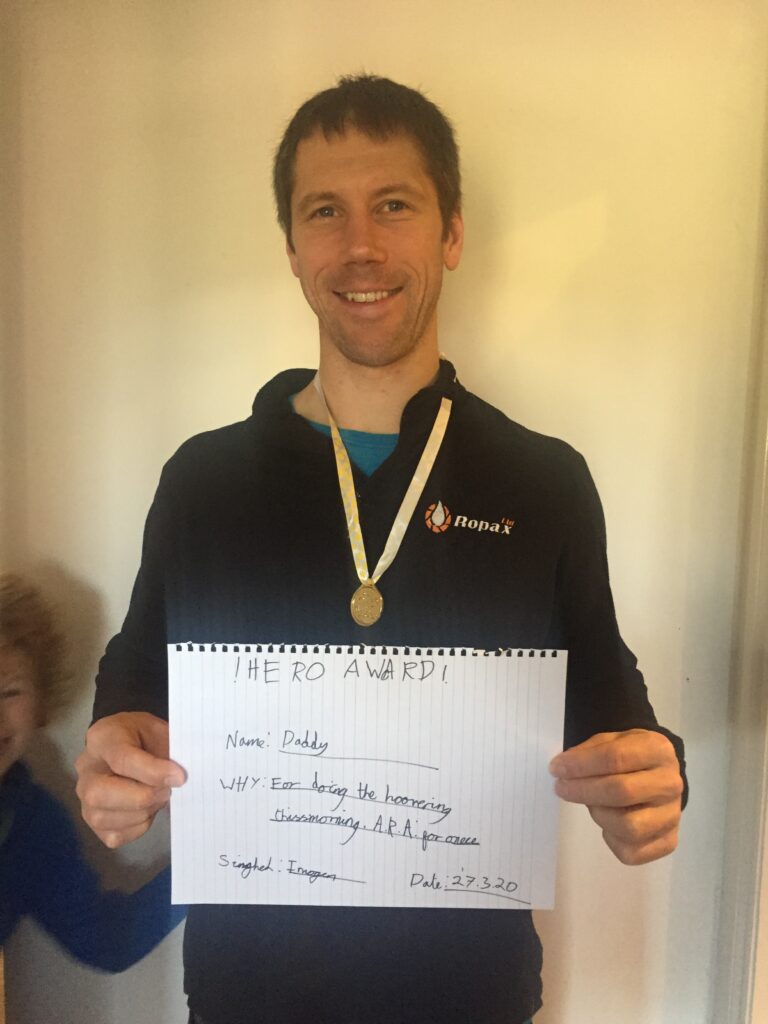 Ropax Ltd
! HERO AWARD !
Name: Daddy
WHY: For doing the hoovering
thissmorning. A.R.A. for onece
Singhed: Imogen
Date: 27.3.20